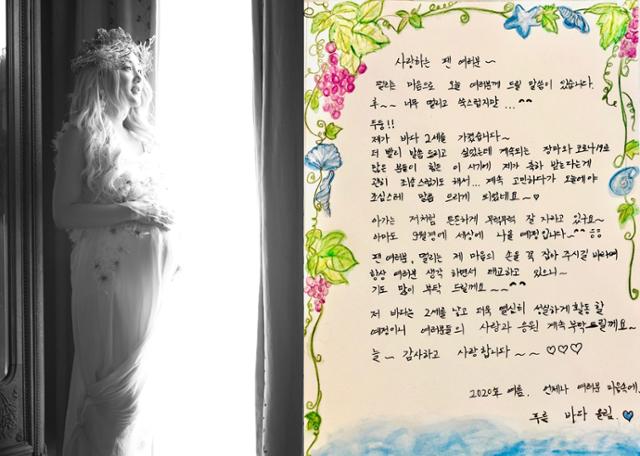 사랑하는 팬 여러분~
떨리는 마음으로 오늘 여러분께 드릴 말씀이 있습니다.
후~~ 너무 떨리고 쑥스럽지만 ...^^
두둥!!
제가 바다 2세를 가졌습니다~
더 빨리 말씀 드리고 싶었는데 계속되는 장마와 코로나19로
많은 분들이 힘든 이 시기에 제가 축하 받는다는게
괜히 죄송스럽기도 해서... 계속 고민하다가 오늘에야
조심스레 말씀 드리게 되었네요~♡
아가는 저처럼 튼튼하게 무럭무럭 잘 자라고 있구요~
아마도 9월경에 세상에 나올 예정입니다~^^
팬 여러분, 떨리는 제 마음의 손을 꼭 잡아 주시길 바라며
항상 여러분 생각 하면서 태교하고 있으니~
기도 많이 부탁 드릴께요 ~~^^
저 바다는 2세를 낳고 더욱 열심히 성실하게 활동 할
예정이니 여러분들의 사랑과 응원 계속 부탁 드릴께요~
늘~ 감사하고 사랑합니다~~♡♡♡
2020年 여름. 언제나 여러분 마음속에.
푸른 바다 올림.♡